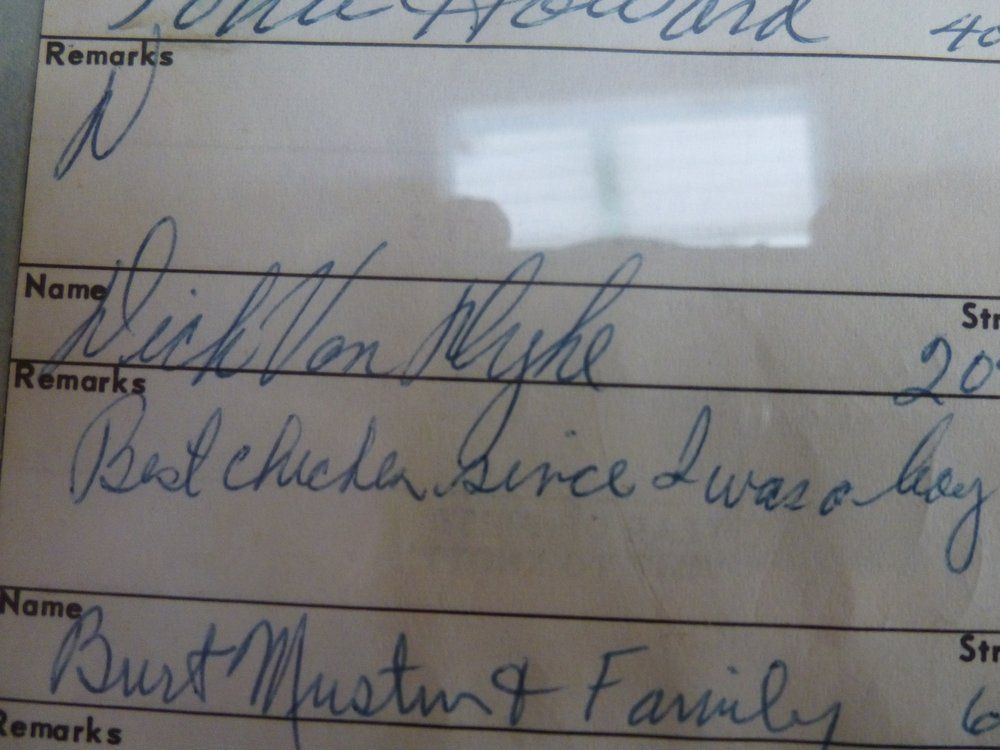 Howard 40
Remarks
Name Dick Van Dyke Str 20
Remarks
Best chicken since I was a boy
Name Burt Mustin & Family Str 6
Remarks